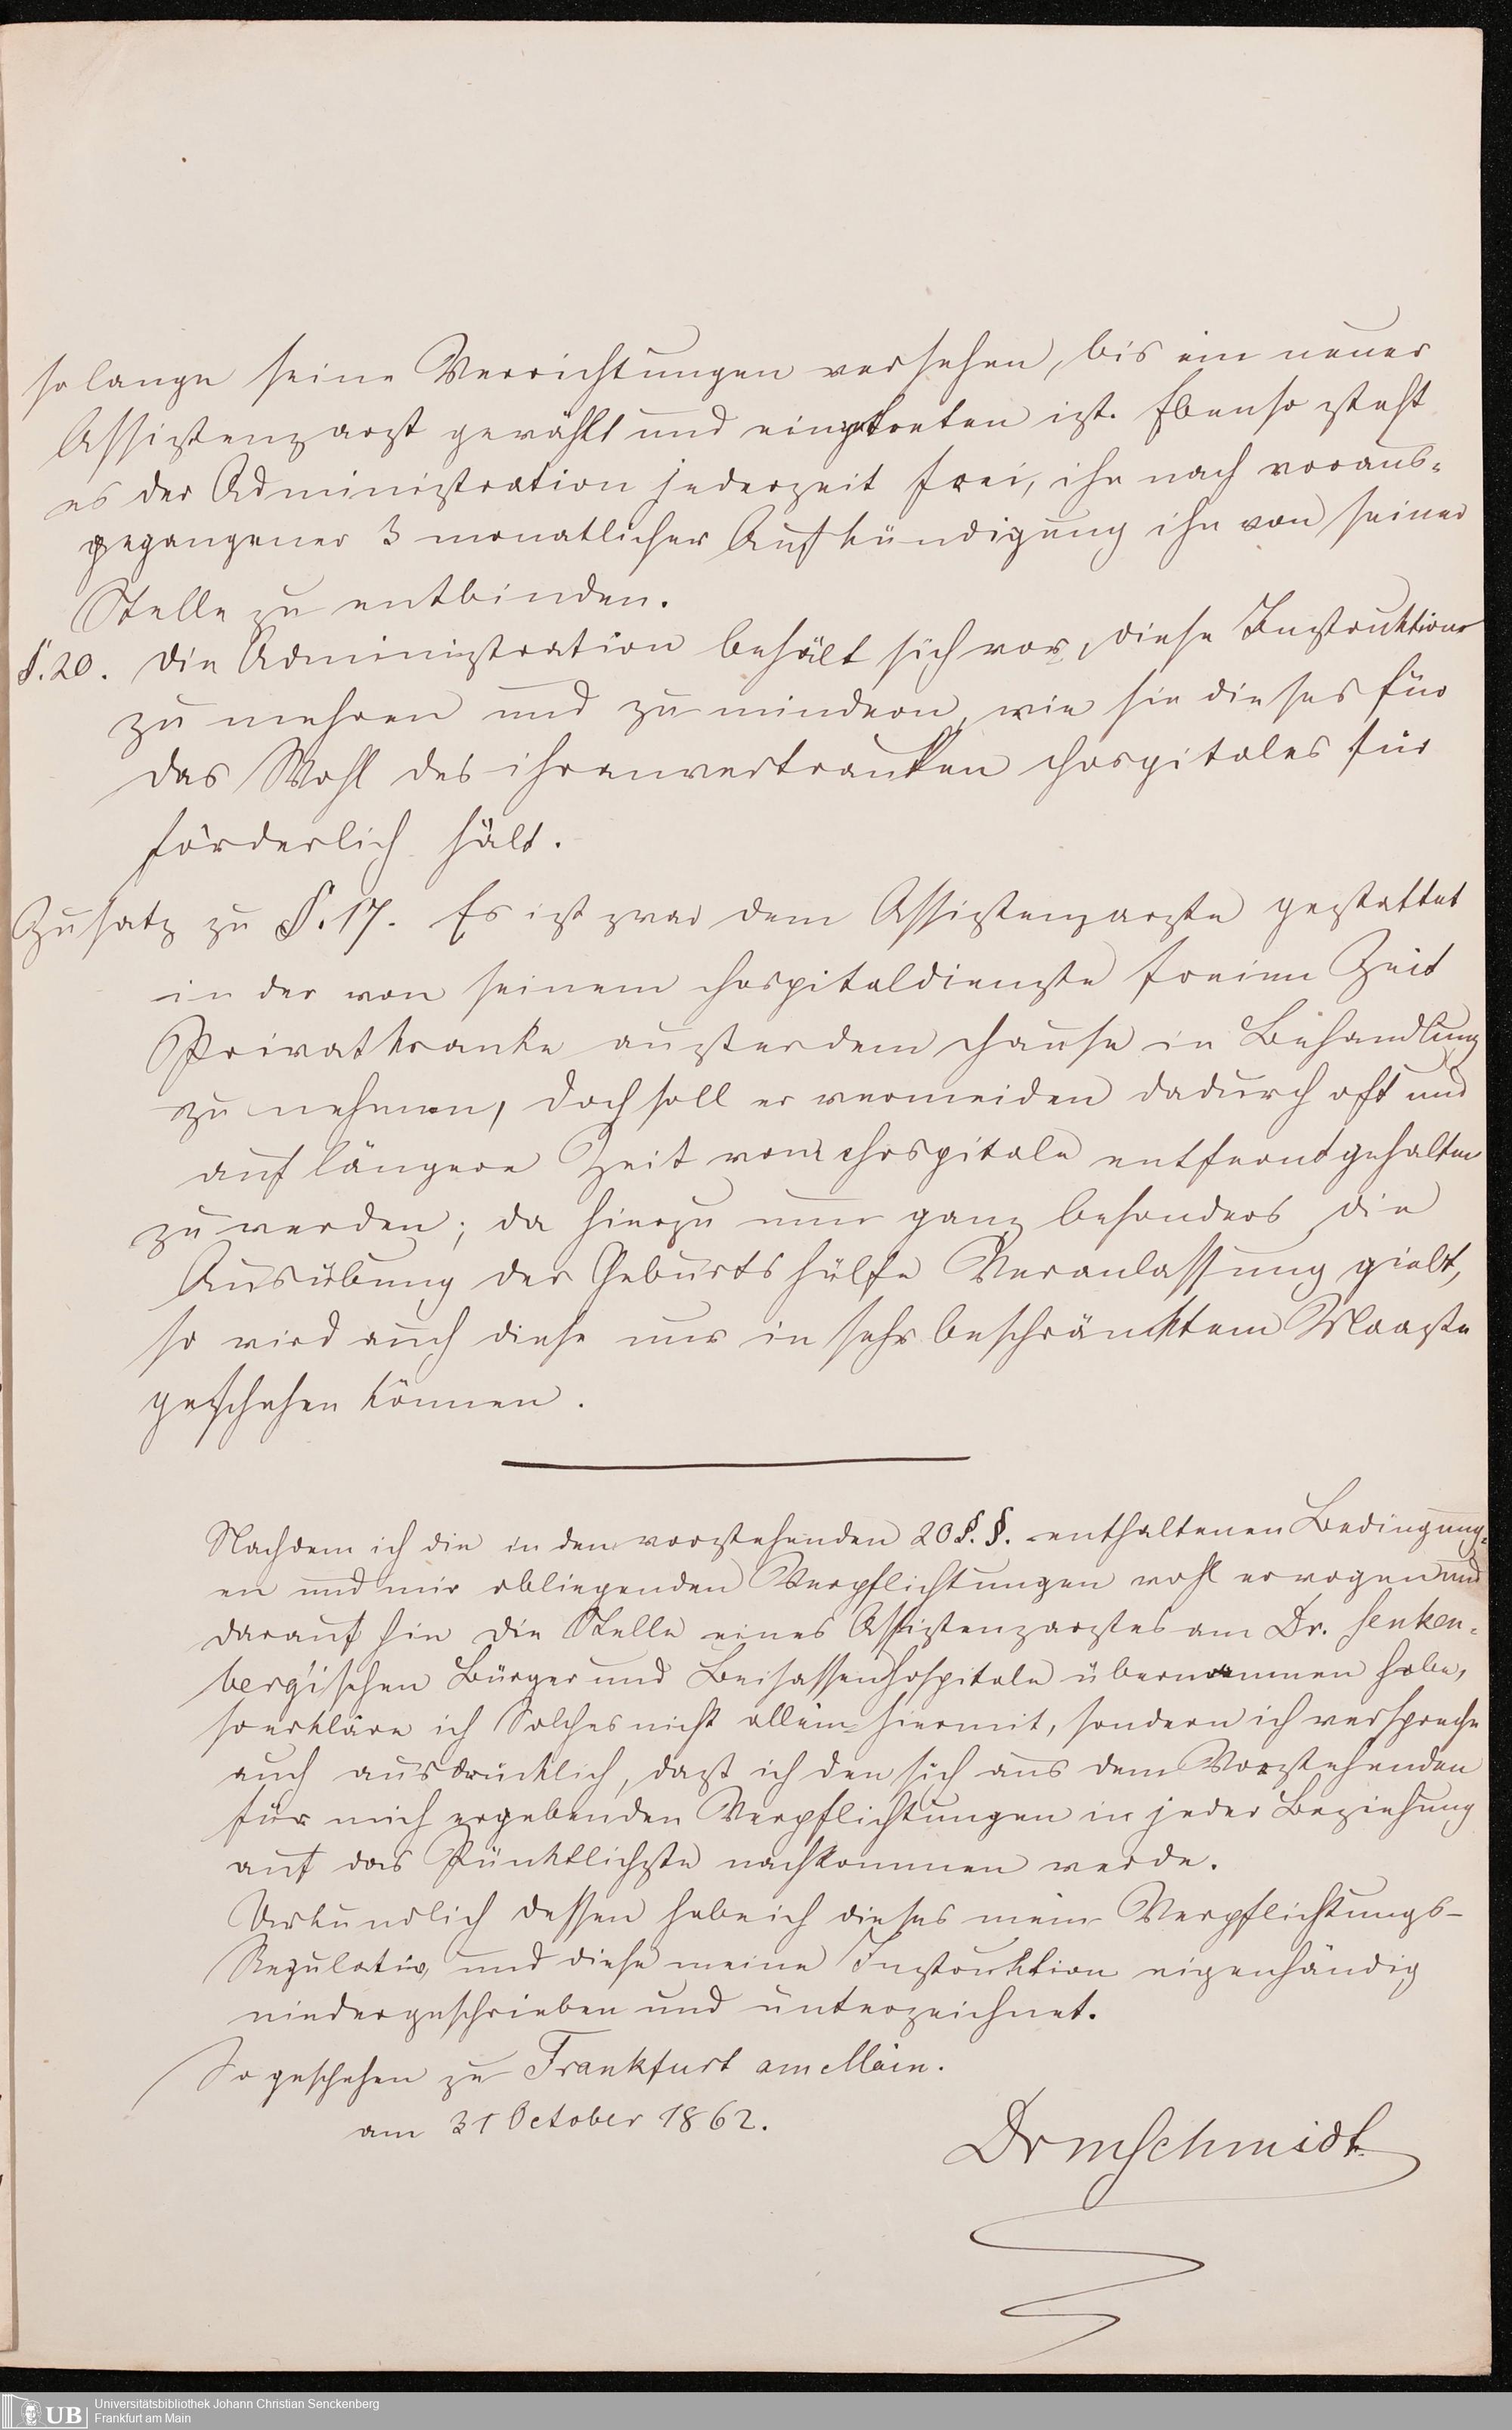 so lange seine Verrichtungen versehen, bis ein neuer
Assistenzarzt gewählt und eingetreten ist. Ebenso steht
es der Administration jederzeit frei, ihn nach voraus-
gegangener 3 monatlicher Aufkündigung ihn von seiner
Stelle zu entbinden.
§. 20. Die Administration behält sich vor, diese Instruktion
zu mehren und zu mindern, wie sie dieses für
das Wohl des ihr anvertrauten Hospitales für
förderlich hält.
Zusatz zu §. 17. Es ist zwar dem Assistenzarzte gestattet
in der von seinem Hospitaldienste freien Zeit
Privatkranke ausser dem Hause in Behandlung
zu nehmen, doch soll er vermeiden dadurch oft und
auf längere Zeit vom Hospitale entfernt gehalten
zu werden; da hierzu nun ganz besonders die
Ausübung der Geburtshülfe Veranlassung giebt,
so wird auch diese nur in sehr beschränktem Maaße
geschehen können.
Nachdem ich die in den vorstehenden 20 §.§. enthaltenen Bedingung-
en und mir obliegenden Verpflichtungen wohl erwogen und
darauf hin die Stelle eines Assistenzarztes am Dr. Senken-
berg'ischen Bürger und Beisassenhospitale übernommen habe,
so erkläre ich Solches nicht allein hiermit, sondern ich verspreche
auch ausdrücklich, daß ich den sich aus dem Vorstehenden
für mich ergebenden Verpflichtungen in jeder Beziehung
auf das Pünktlichste nachkommen werde.
Urkundlich dessen habe ich dieses mein Verpflichtungs-
Regulativ und diese meine Instruktion eigenhändig
niedergeschrieben und unterzeichnet.
So geschehen zu Frankfurt am Main.
am 31 October 1862.
Dr M Schmidt
UB
Universitätsbibliothek Johann Christian Senckenberg
Frankfurt am Main